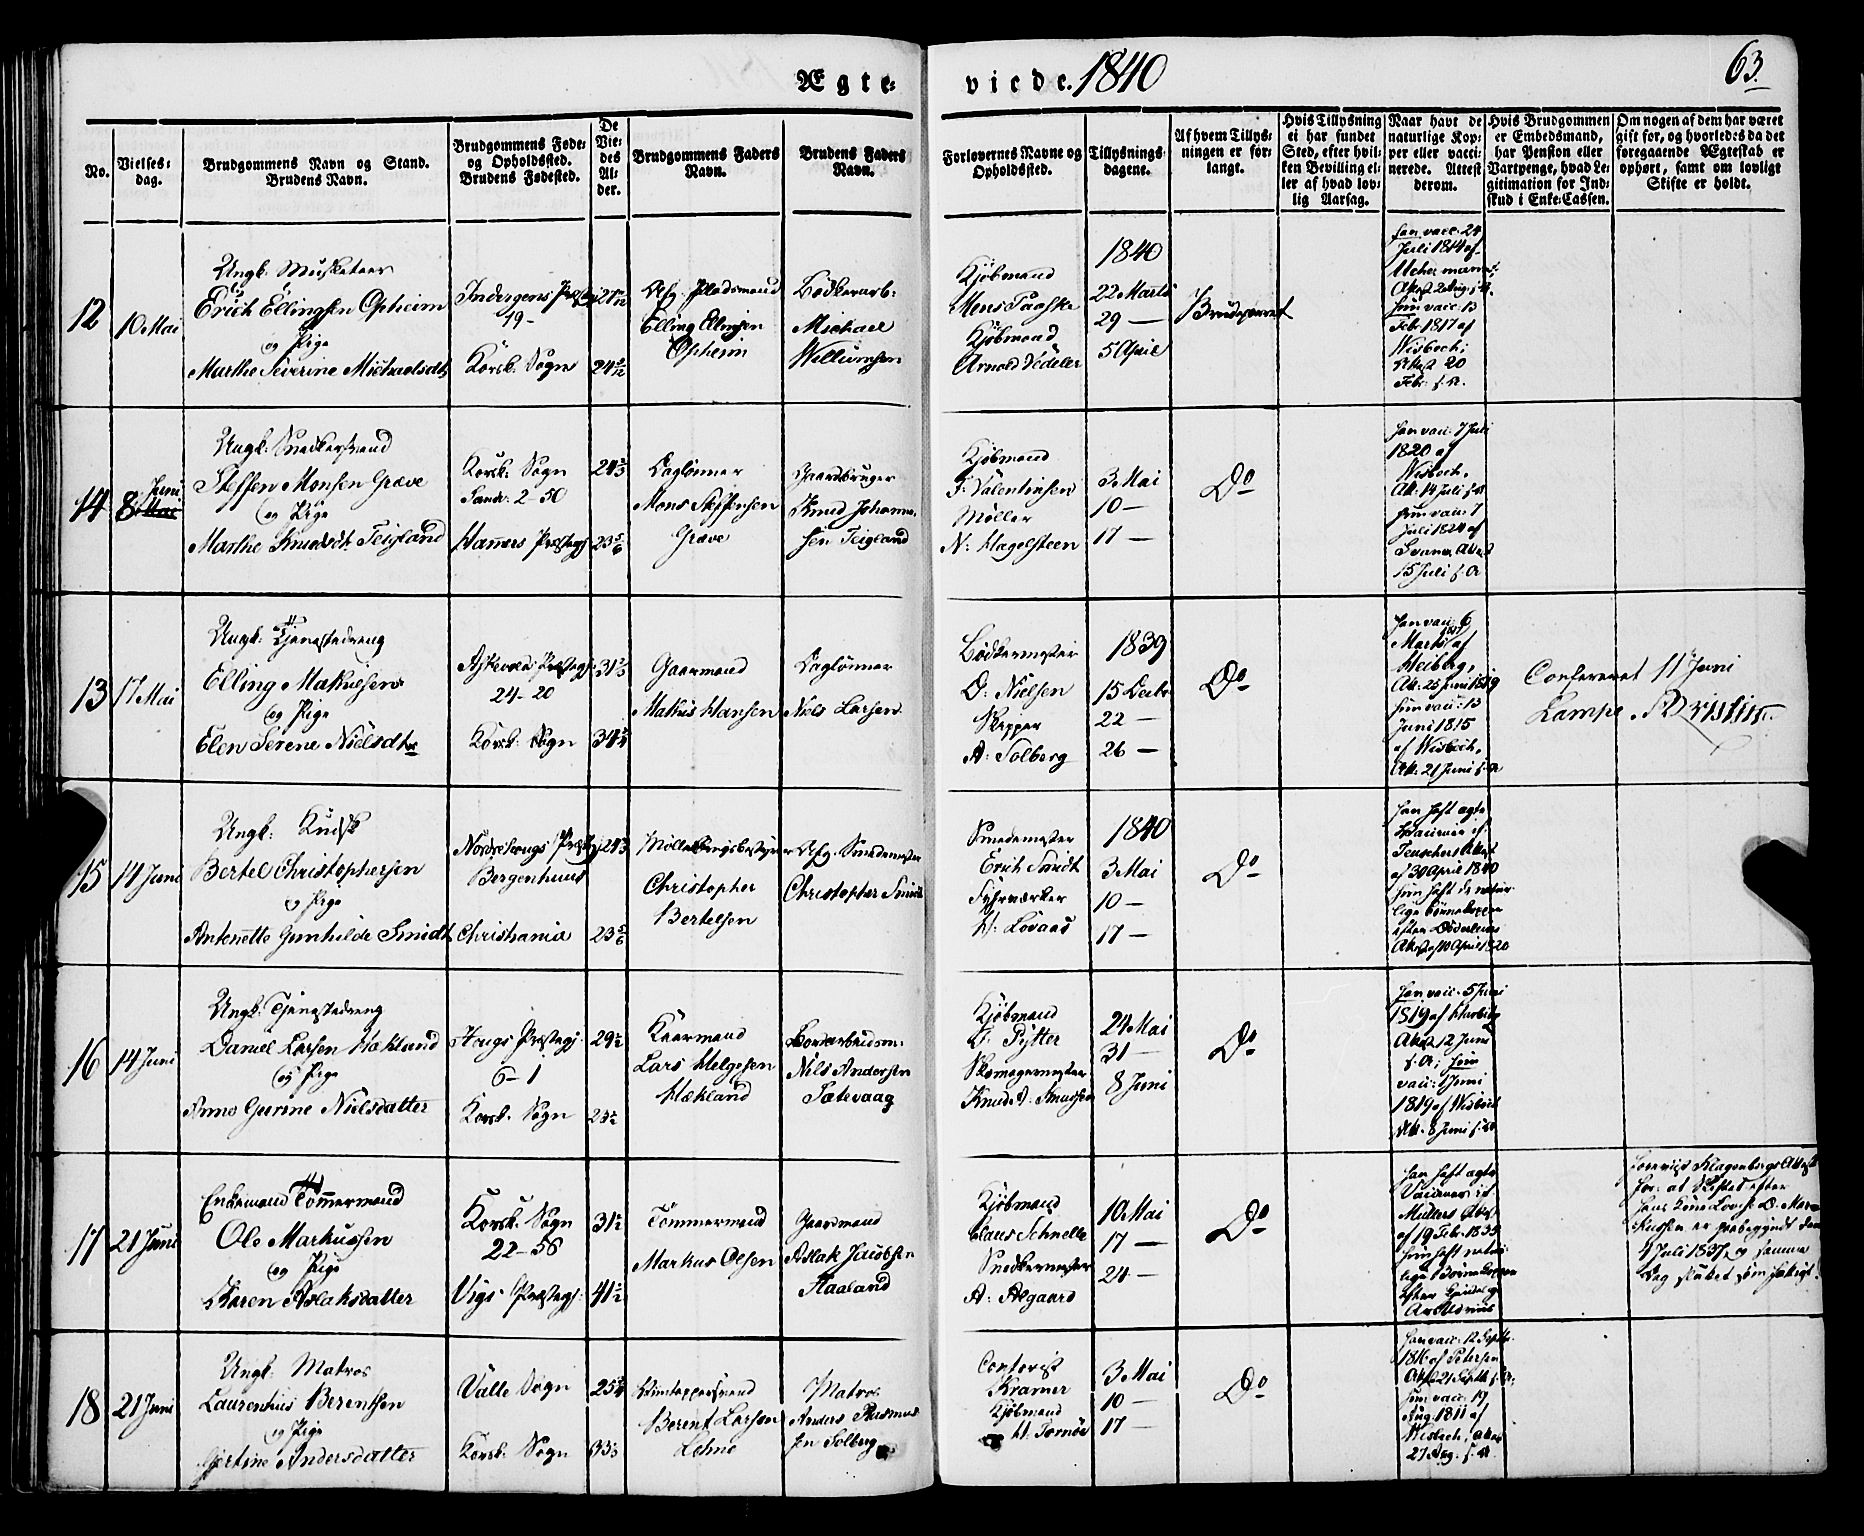 Ægte-
viede. 1840
63.
No.
Vielses-
dag.
Brudgommens Navn og Stand.
Brudens Navn.
Brudgommens Føde-
og Opholdssted.
Brudens Fødested.
De
Vie-
des
Al-
der.
Brudgommens Faders
Navn.
Brudens Faders
Navn.
Forlovernes Navne og
Opholdssted.
Tillysnings-
dagene.
Af hvem Tillys-
ningen er for-
langt.
Hvis Tillysning
ei har fundet
Sted, efter hvil-
ken Bevilling el-
ler af hvad lov-
lig Aarsag.
Naar havt de
naturlige Kop-
per eller vacci-
nerede. Attest
derom.
Hvis Brudgommen
er Embedsmand,
har Pension eller
Vartpenge, hvad Le-
gitimation for Ind-
skud i Enke-Cassen.
Om nogen af dem har været
gift før, og hvorledes da det
foregaaende Ægteskab er
ophørt, samt om lovligt
Skifte er holdt.
12
10 Mai
Ungk: Musketeer
Erich Ellingsen Opheim
og Pige
Marthe Severine Michaelsdtr
19-
Korsk: Sogn
Elling Ellingsen
Opheim
Bødkerarb:
Michael
Willumsen
Kjøbmand
Mons Taaske
Kjøbmand
Arnold Vedeler
1840
22 Marts
29 —
5 April
Brudeparret
Han vacc: 24
Juli 1814 af
Uchermann
Hun vacc: 13
Febr. 1817 af
Wisbech;
Attest 20
Febr: s. A.
14
8 Juni
Ungk: Snedkersvend
Steffen Monsen Græve
og Pige
Marthe Knudsdt: Teigland
Korsk: Sogn
Sandv: 2-50
Hammers Præstegj
Daglønner
Mons Steffensen
Græve
Gaardbruger
Knud Johanne-
sen Teigland
Kjøbmand
F: Valentinsen
Møller
N: Hagelsteen
3 Mai
10 —
17 —
Do
Han vacc: 7 Juli
1820 af
Wisbech,
Att: 14 Juli s: A
Hun vacc: 7
Juli 1824 af
15 Juli s. A
13
17 Mai
Ungk: Tjenestedreng
Elling Matiesen
og Pige
Elen Serene Nielsdtr
Askevolds Præstegj:
24-20
Korsk: Sogn
Gaarmand
Matias Hansen
Daglønner
Niels Larsen
Bødkermester
O: Nielsen
Skipper
A: Solberg
1839
15 Decbr
22 —
26 —
Do
Han vacc: 6
Marts af
Heiberg,
Att: 25 Juni 1839
Hun vacc: 13
Juni 1815
af Wisbech,
Att: 21 Juni s: A
Confereret 11te Juni
15
14 Juni
Ungk: Kudsk
Bertel Christophersen
og Pige
Antonette Gunhilde Smidt
Nordrehougs Præstegj
Bergenhuus
Christiania
Møllebrugsbestyrer
Christopher
Bertelsen
Afg. Smedemester
Christopher Smidt
Smedemester
Erich Smidt
Fyhrværker
H: Lovaas
1840
3 Mai
10 —
17 —
Do
Han haft ægte
af 30 April 1840
Hun haft de natur
lige Børnekopper
Attest af 10 April 1820
16
14 Juni
Ungk: Tjenestedreng
Daniel Larsen Hækland
og Pige
Anne Gurine Nielsdatter
Hougs Præstegj:
6-1
Korsk: Sogn
29½
23½
Kaarmand
Lars Helgesen
Hækland
Nils Andersen
Tætevaag
Kjøbmand
D: Pytter
Skomagermester
Knud A: Knudsen
24 Mai
31 —
8 Juni
Do
Han vacc: 5 Juni
1819 af Harbitz
Attest 12 Juni
s: A; Hun
vacc: 1 Juni
1819 af Wisbech
Att: 8 Juni s: A
17
21 Juni
Enkemand Tømmermand
Ole Markussen
og Pige
Karen Aslaksdatter
Korsk: Sogn
22-56
Vigs Præstegj:
31½
41½
Tømmermand
Markus Olsen
Gaardmand
Aslak Jacobsen
Haaland
Kjøbmand
Claus Schnelle
Snedkermester
A: Aegaard
10 Mai
17 —
24 —
Do
Han haft ægte
Vacciner if:
Müllers Attest
af 19 Febr. 1835
Hun haft natur-
lige Børnekopper
Foreviist Klagenbergs Attest
for: at Skiftet efter
hans Kone Lovise D: Mar-
kussen er paabegyndt den
4 Juli 1837, og samme
Dag sluttet som fattigt.
18
21 Juni
Ungk: Matros
Laurentius Berentsen
og Pige
Gjertine Andersdatter
Valle Sogn
Korsk: Sogn
Viintappersvend
Berent Larsen
Lehne
Matros
Anders Rasmus-
sen Solberg
Contorist
Kramer
Kjøbmand
H. Tornøe
3 Mai
10 —
17 —
Do
Han vacc: 12 Septbr.
1816 af Petersen
Attest 21 Septb s: A;
Hun vacc: 19
Aug: 1811 af
Wisbech, Attest
27 Aug: s: A.